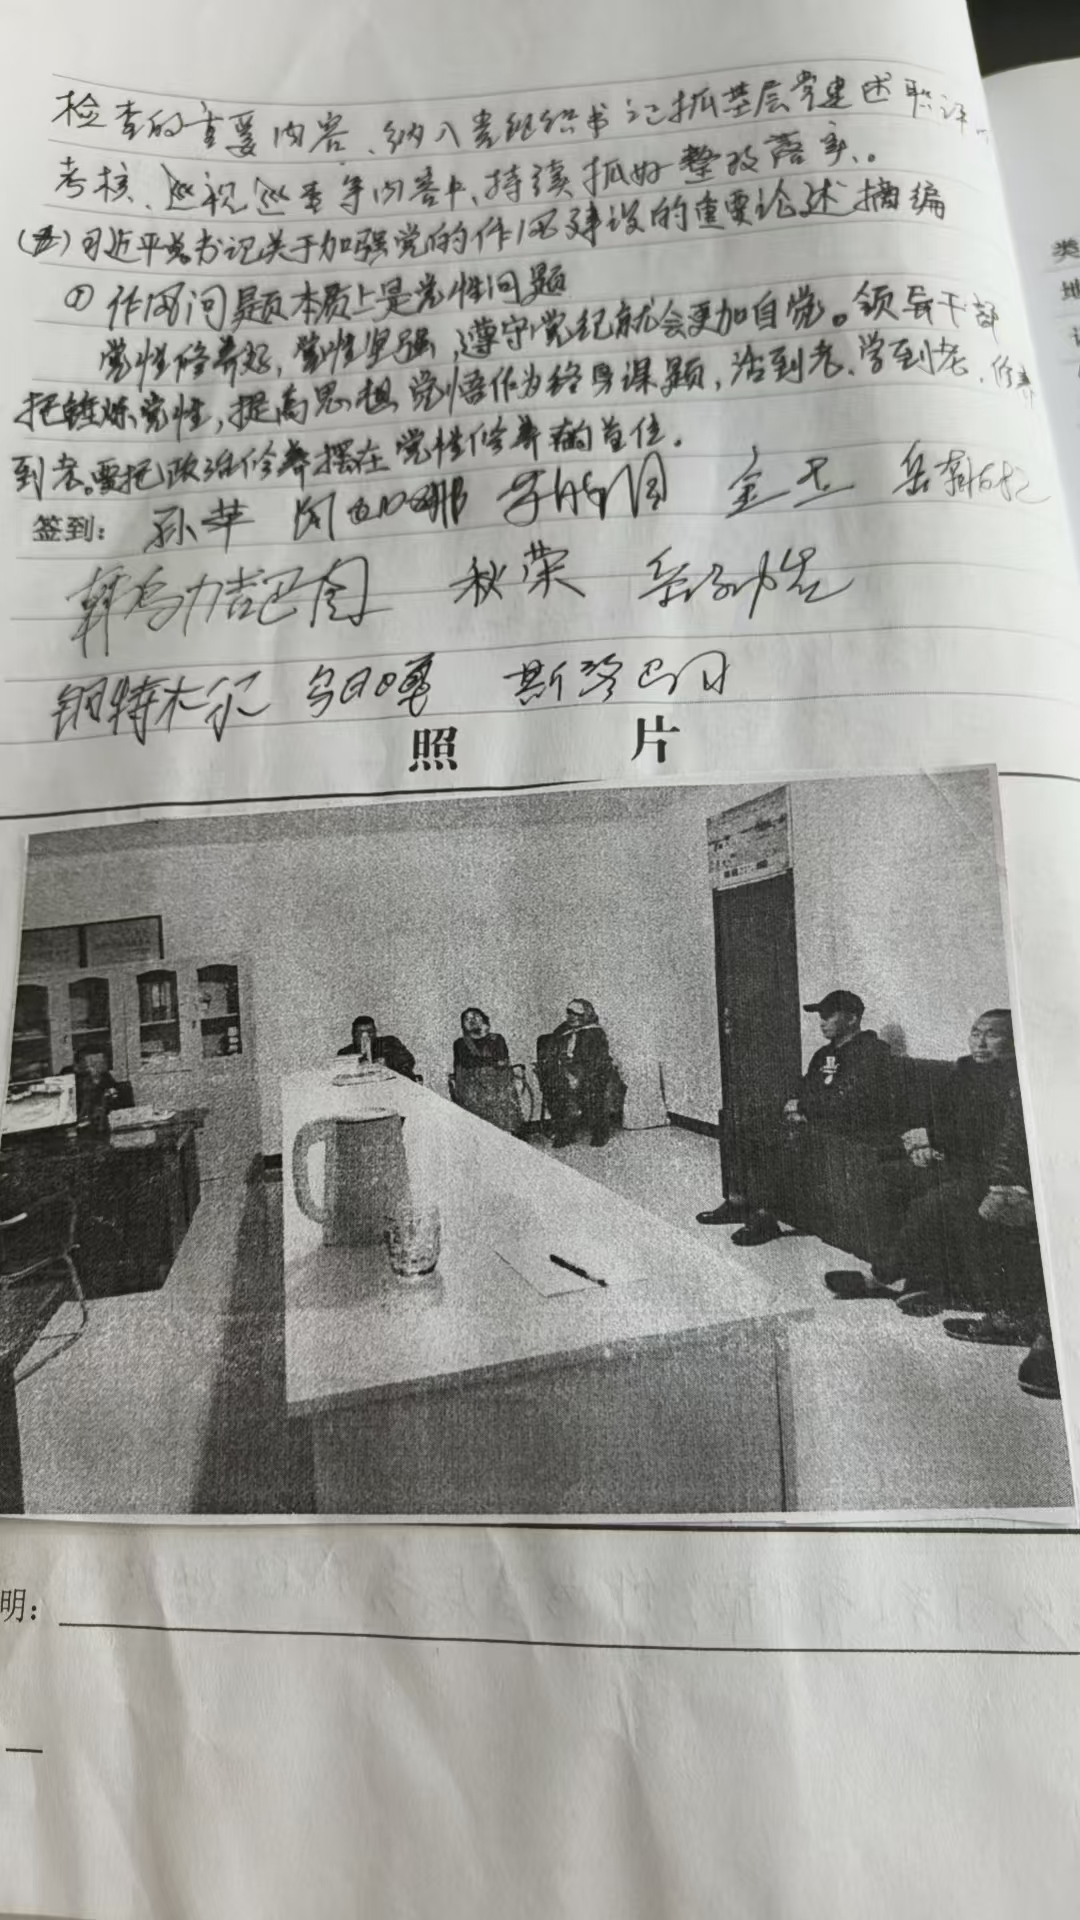 检查的重要内容、纳入党组织书记抓基层党建述职评
考核、巡视巡查等内容中、持续抓好整改落实。
(五)习近平总书记关于加强党的作风建设的重要论述摘编
① 作风问题本质上是党性问题
党性修养好，党性坚强，遵守党纪就会更加自觉。领导干部
把锤炼党性，提高思想觉悟作为终身课题，活到老、学到老、修养
到老。要把政治修养摆在党性修养的首位。
签到: 孙苹
韩乌力吉巴图 秋荣
钢特木尔
照 片
明: